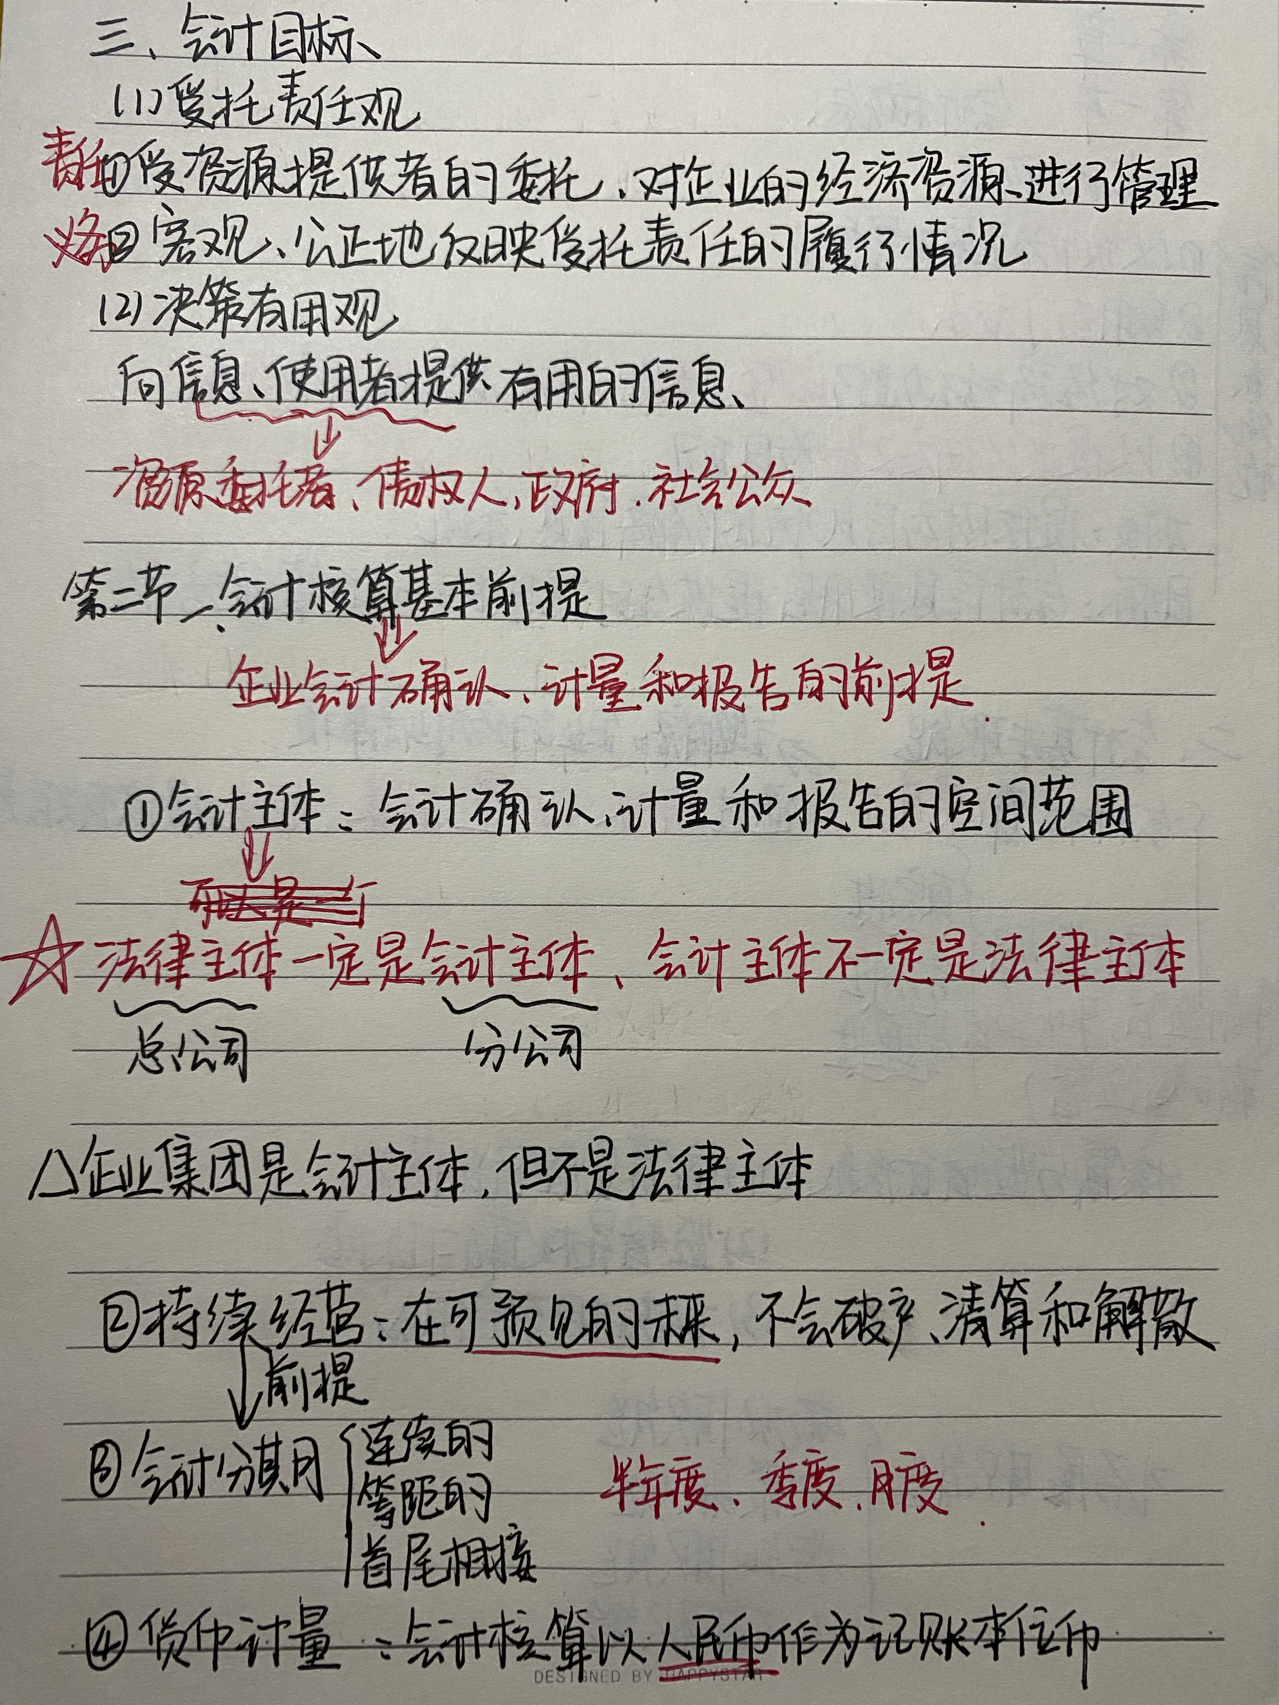 三、会计目标
(1)受托责任观
责任①受资源提供者的委托、对企业的经济资源进行管理
②客观、公正地反映受托责任的履行情况
(2)决策有用观
向信息使用者提供有用的信息
资源委托者、债权人、政府、社会公众
第二节、会计核算基本前提
企业会计确认、计量和报告的前提.
①会计主体：会计确认、计量和报告的空间范围
☆法律主体一定是会计主体、会计主体不一定是法律主体
总公司 分公司
△企业集团是会计主体，但不是法律主体
②持续经营：在可预见的未来，不会破产、清算和解散
前提
连续的
③会计分期 等距的 半年度、季度、月度.
首尾相接
④货币计量：会计核算以人民币作为记账本位币
DESIGNED BY HAPPYSTAR